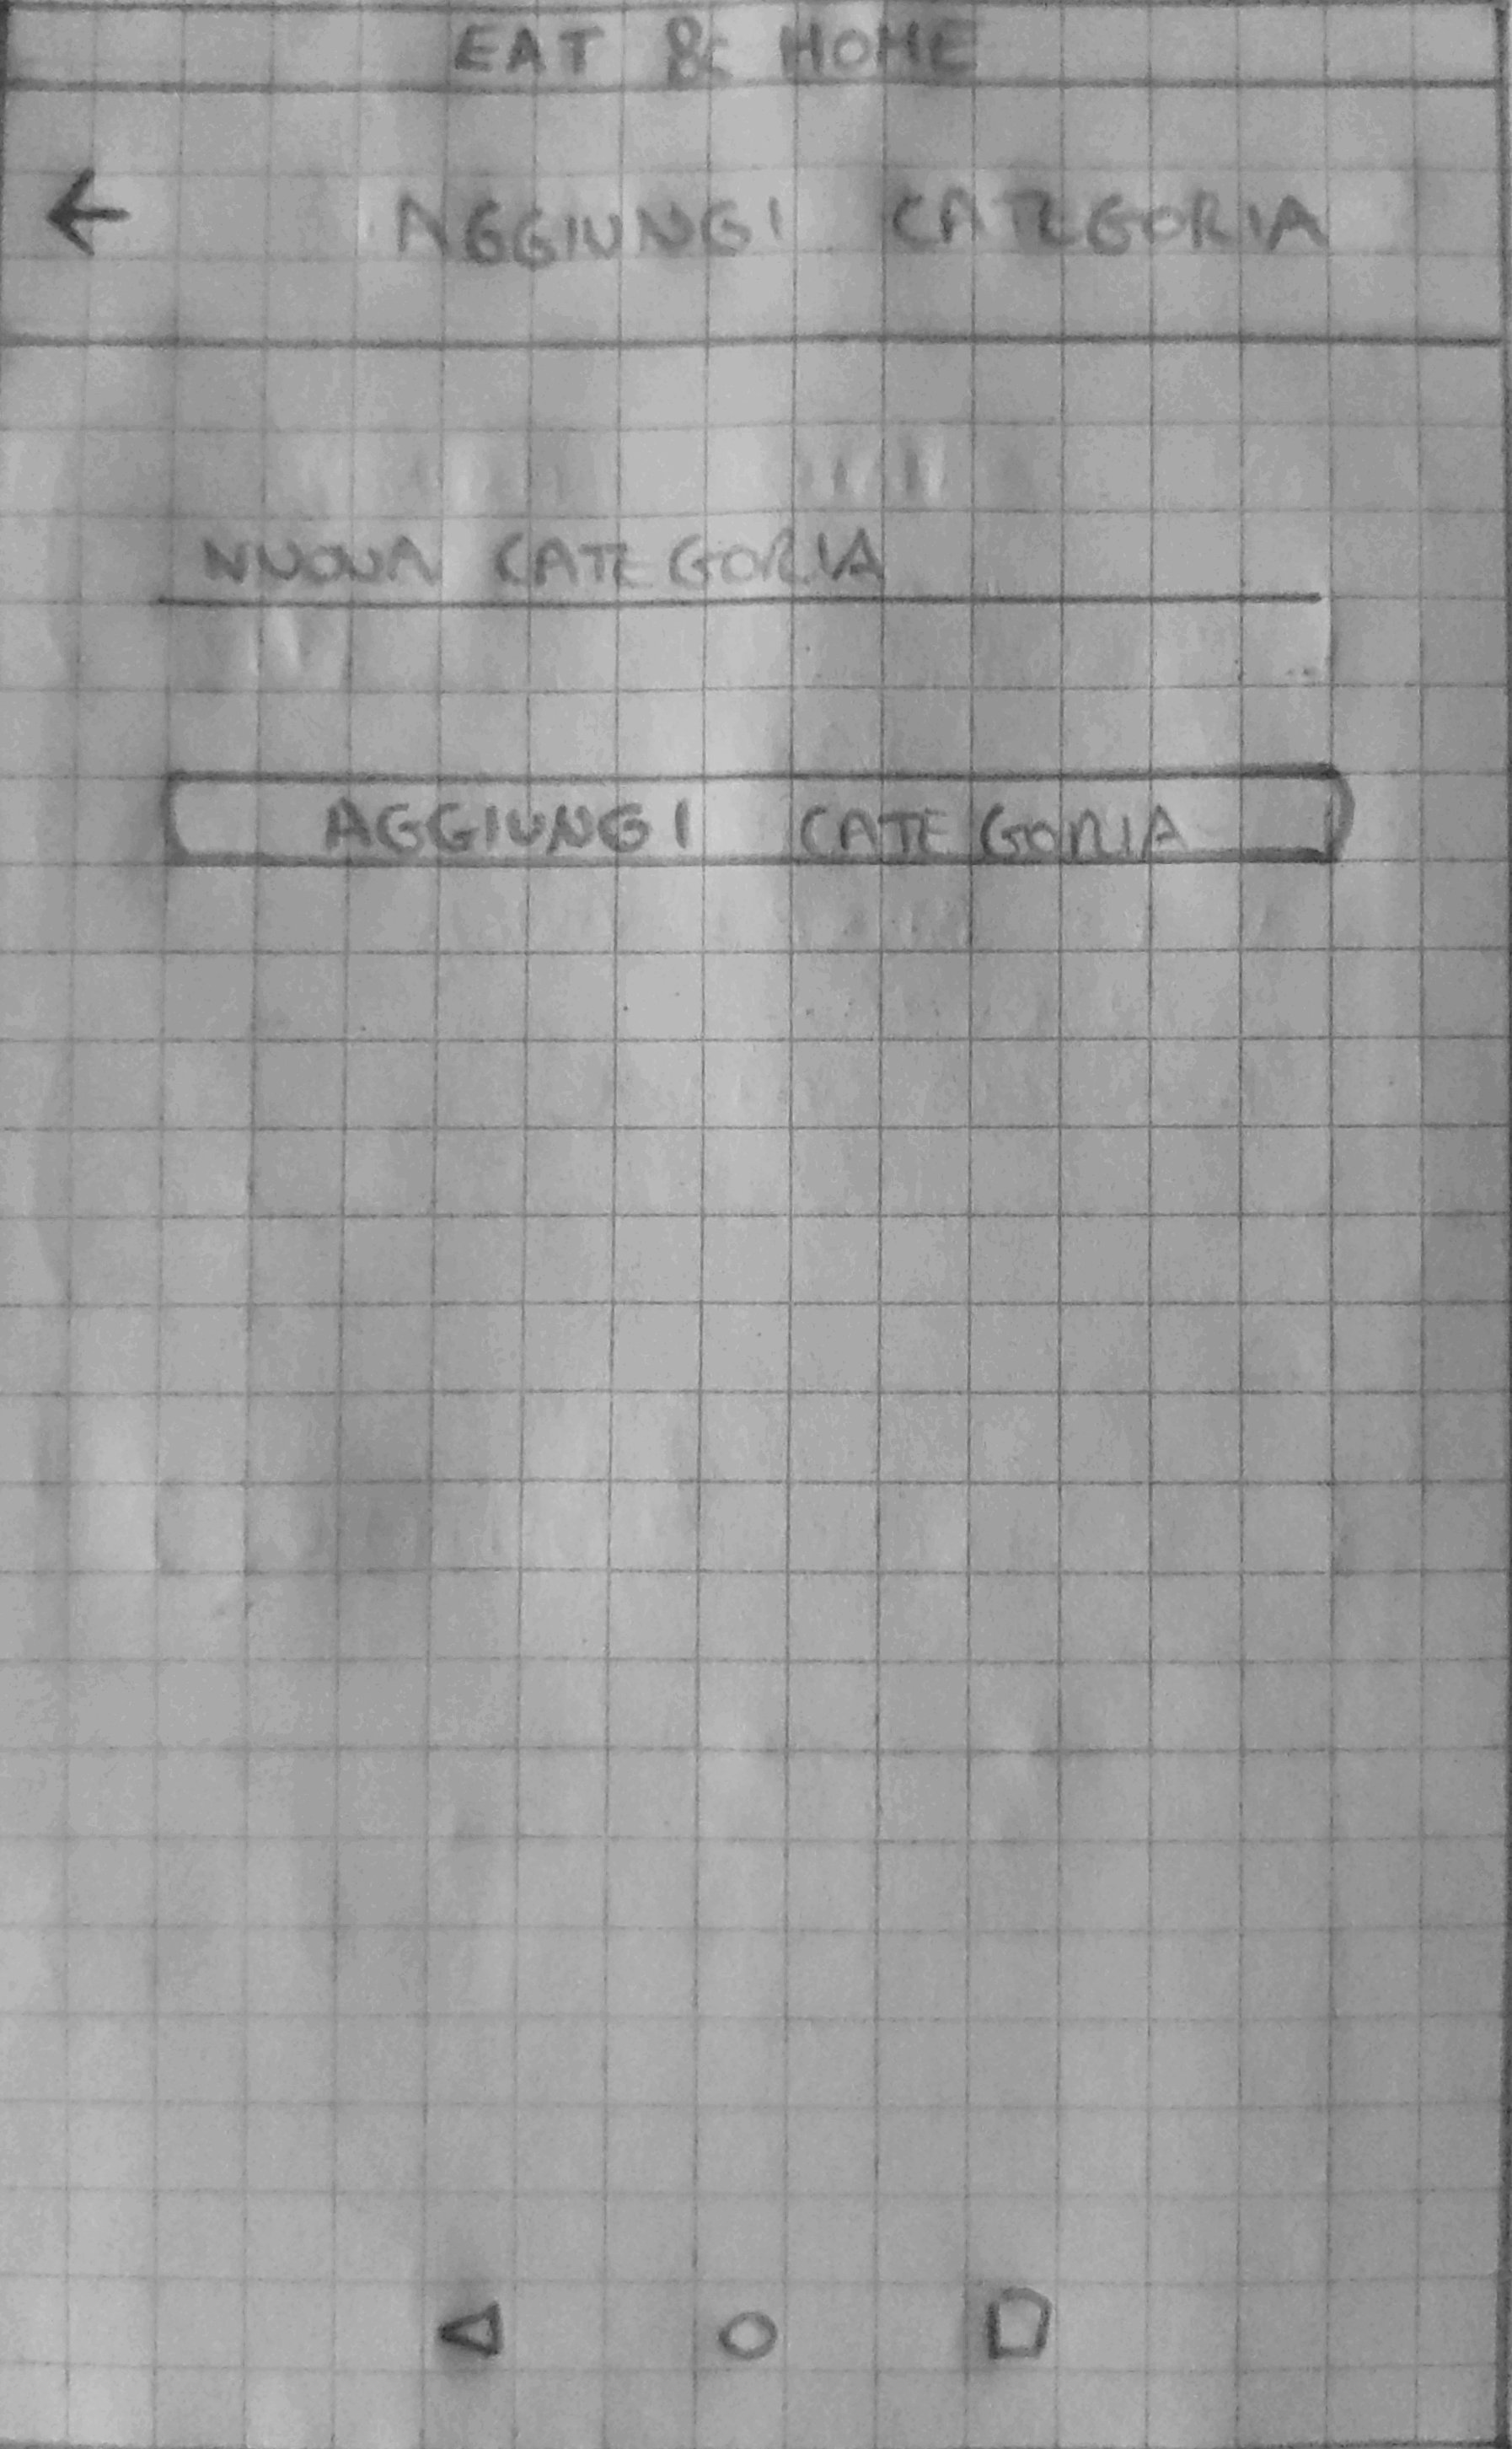 EAT & HOME
← AGGIUNGI CATEGORIA
NUOVA CATEGORIA
AGGIUNGI CATEGORIA